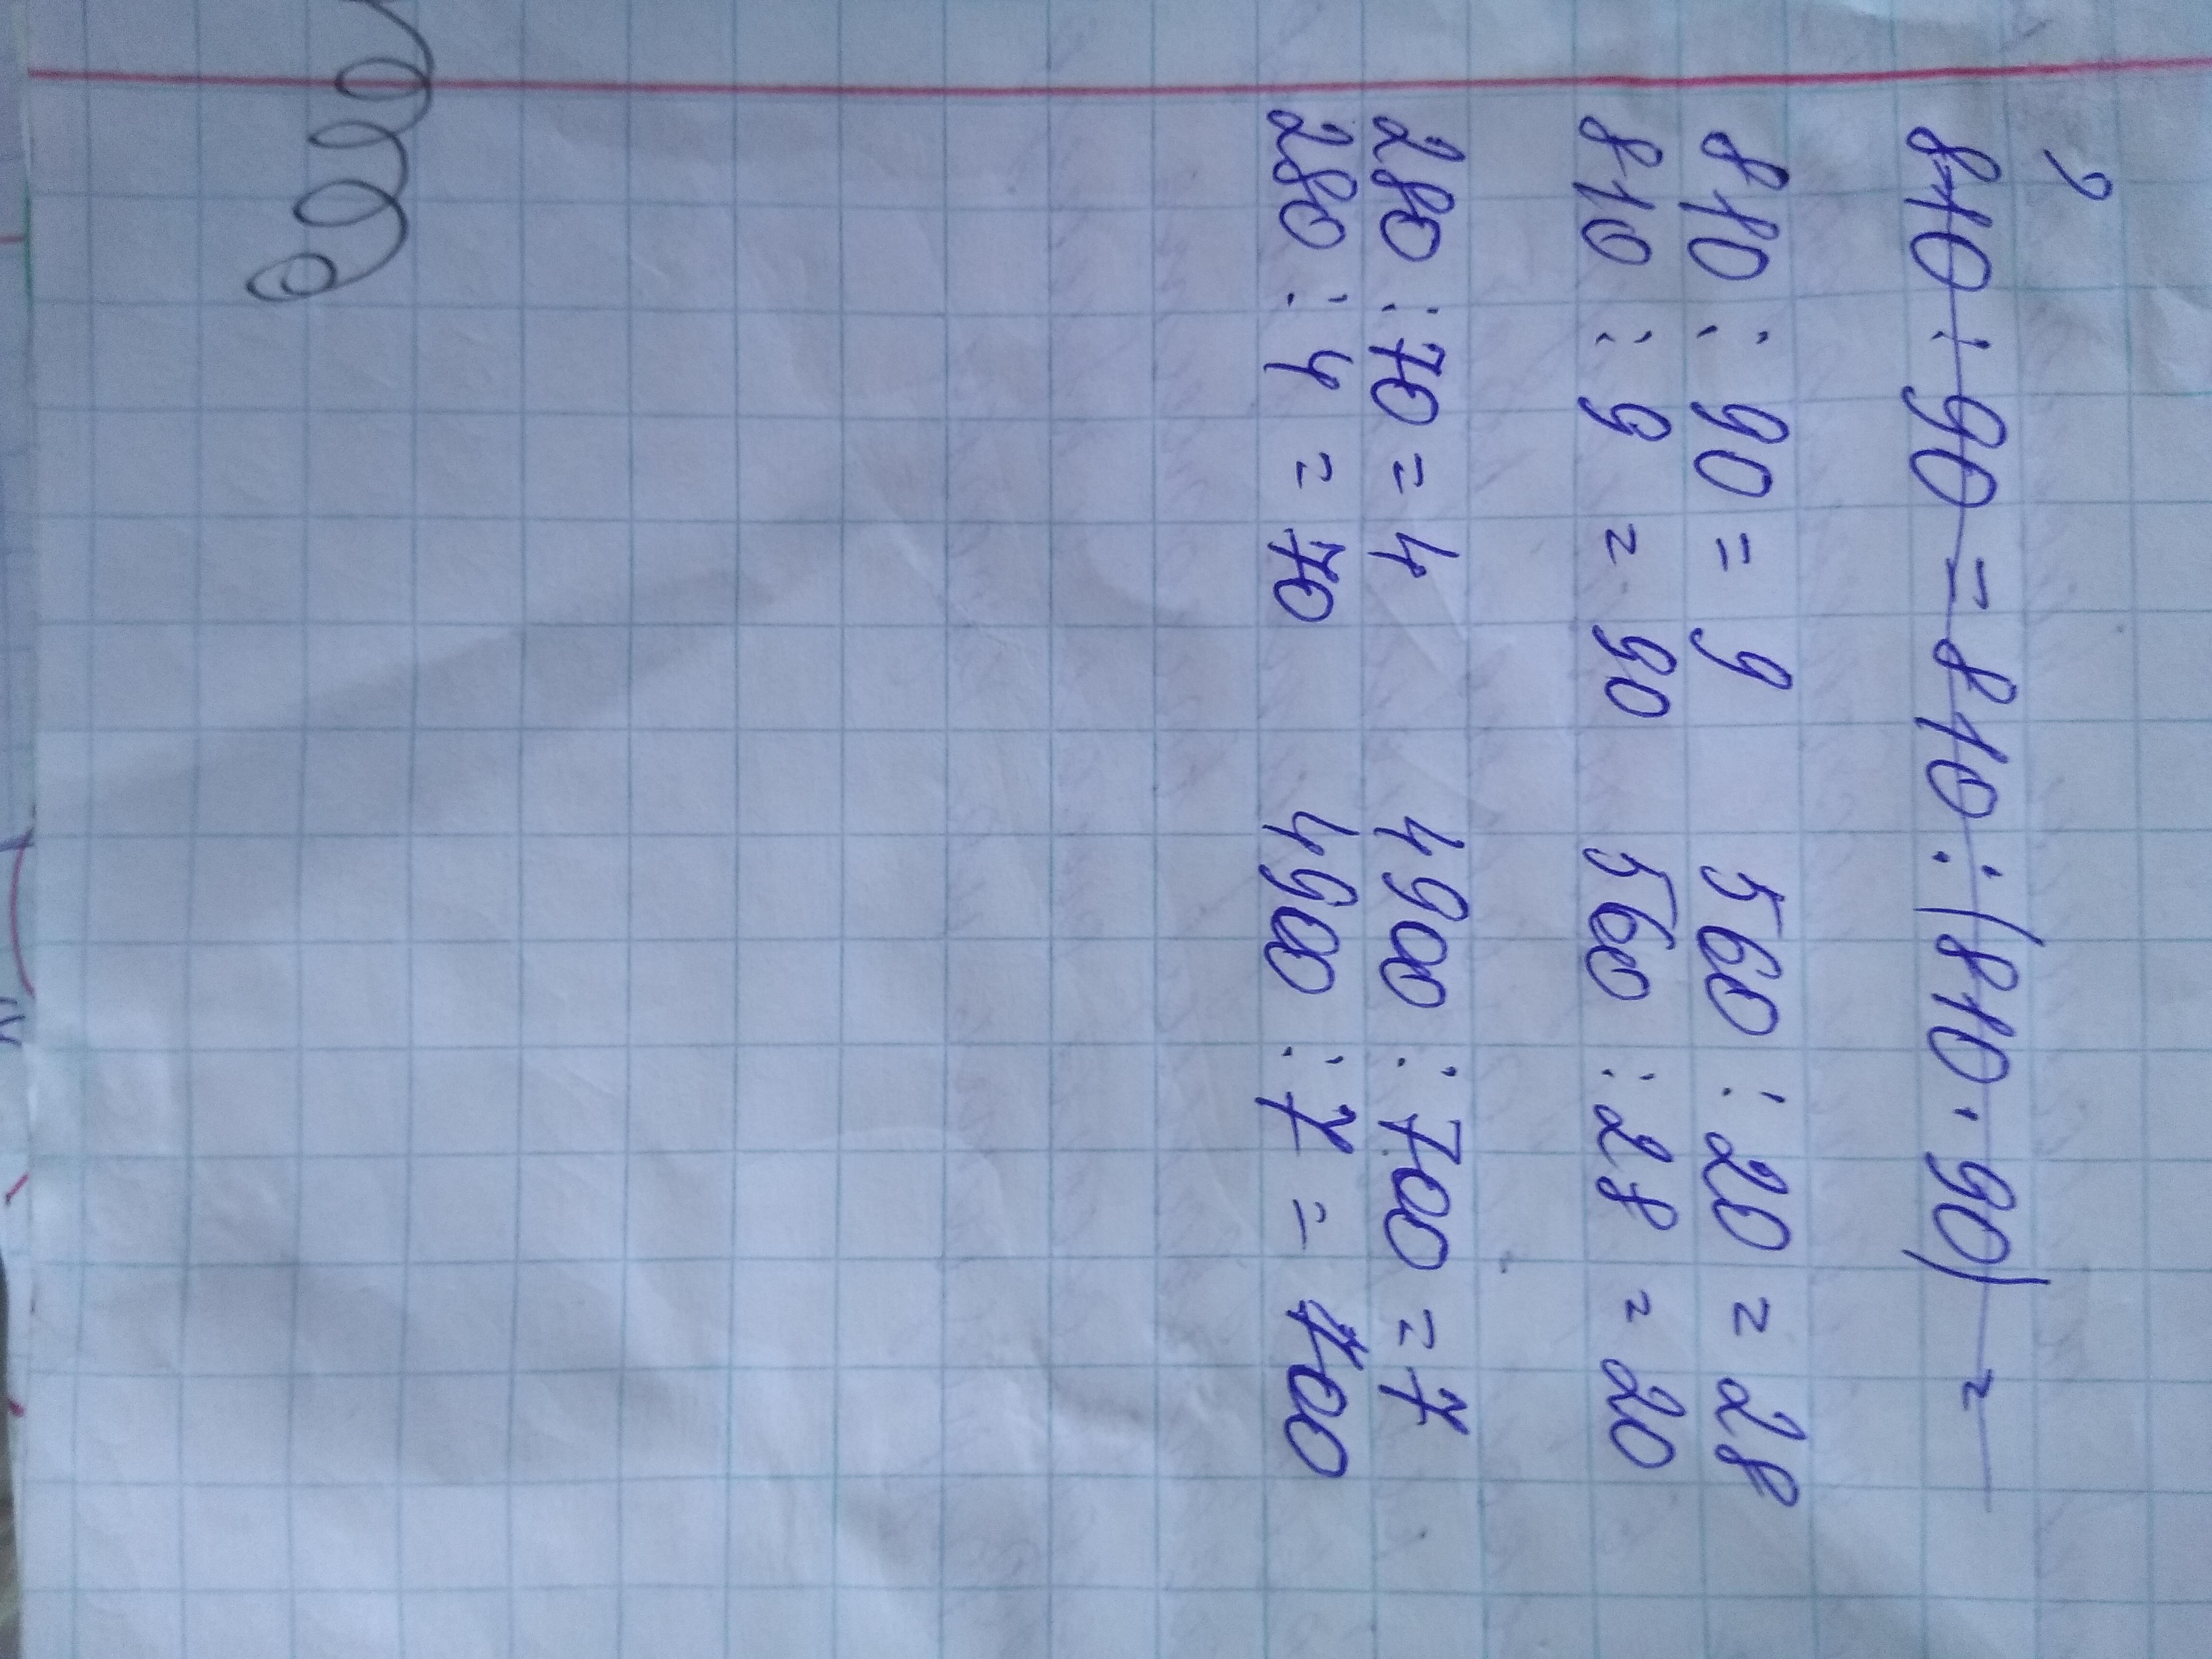 2
810 : 90 = 810 : (810 · 90) =
810 : 90 = 9 560 : 20 = 28
810 : 9 = 90 560 : 28 = 20
280 : 70 = 4 4900 : 700 = 7
280 : 4 = 70 4900 : 7 = 700